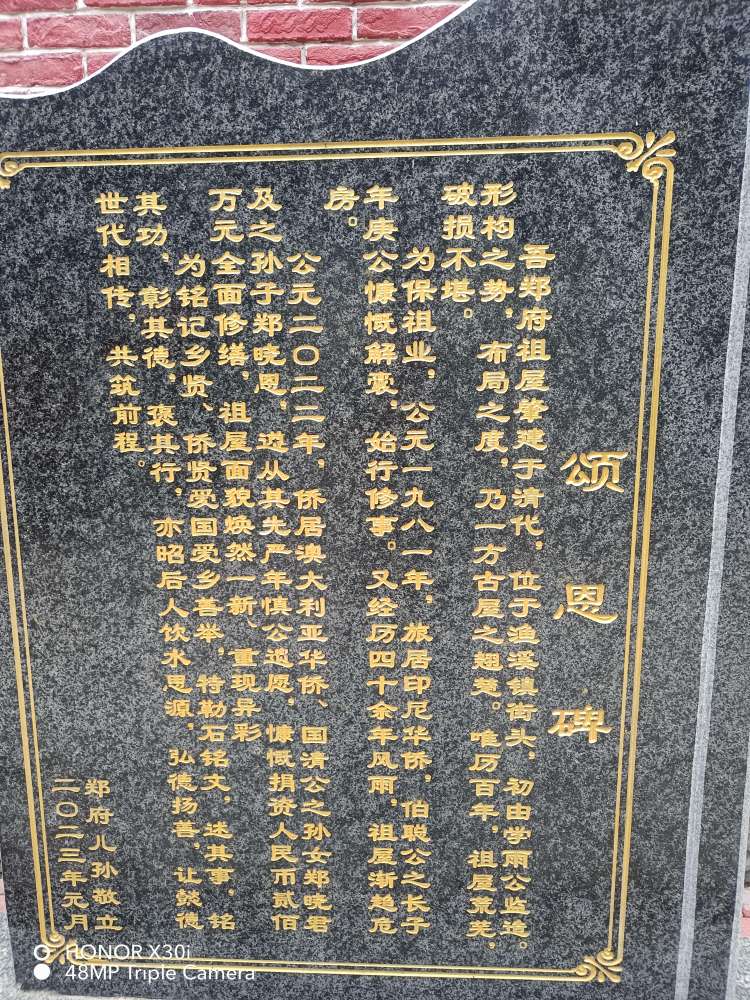 颂恩碑
吾郑府祖屋肇建于清代，位于渔溪镇街头，初由学雨公监造。
形构之势，布局之度，乃一方古屋之翘楚。唯历百年，祖屋荒芜，
破损不堪。
为保祖业，公元一九八一年，旅居印尼华侨，伯聪公之长子
年庚公慷慨解囊，始行修事。又经历四十余年风雨，祖屋渐趋危
房。
公元二〇二二年，侨居澳大利亚华侨、国清公之孙女郑晓君
及之孙子郑晓恩，遵从其先严年慎公遗愿，慷慨捐资人民币贰佰
万元全面修缮，祖屋面貌焕然一新、重现异彩
为铭记乡贤、侨贤爱国爱乡善举，特勒石铭文，述其事，铭
其功，彰其德，褒其行，亦昭后人饮水思源，弘德扬善，让懿德
世代相传，共筑前程。
郑府儿孙敬立
二〇二三年元月
HONOR X30i
48MP Triple Camera